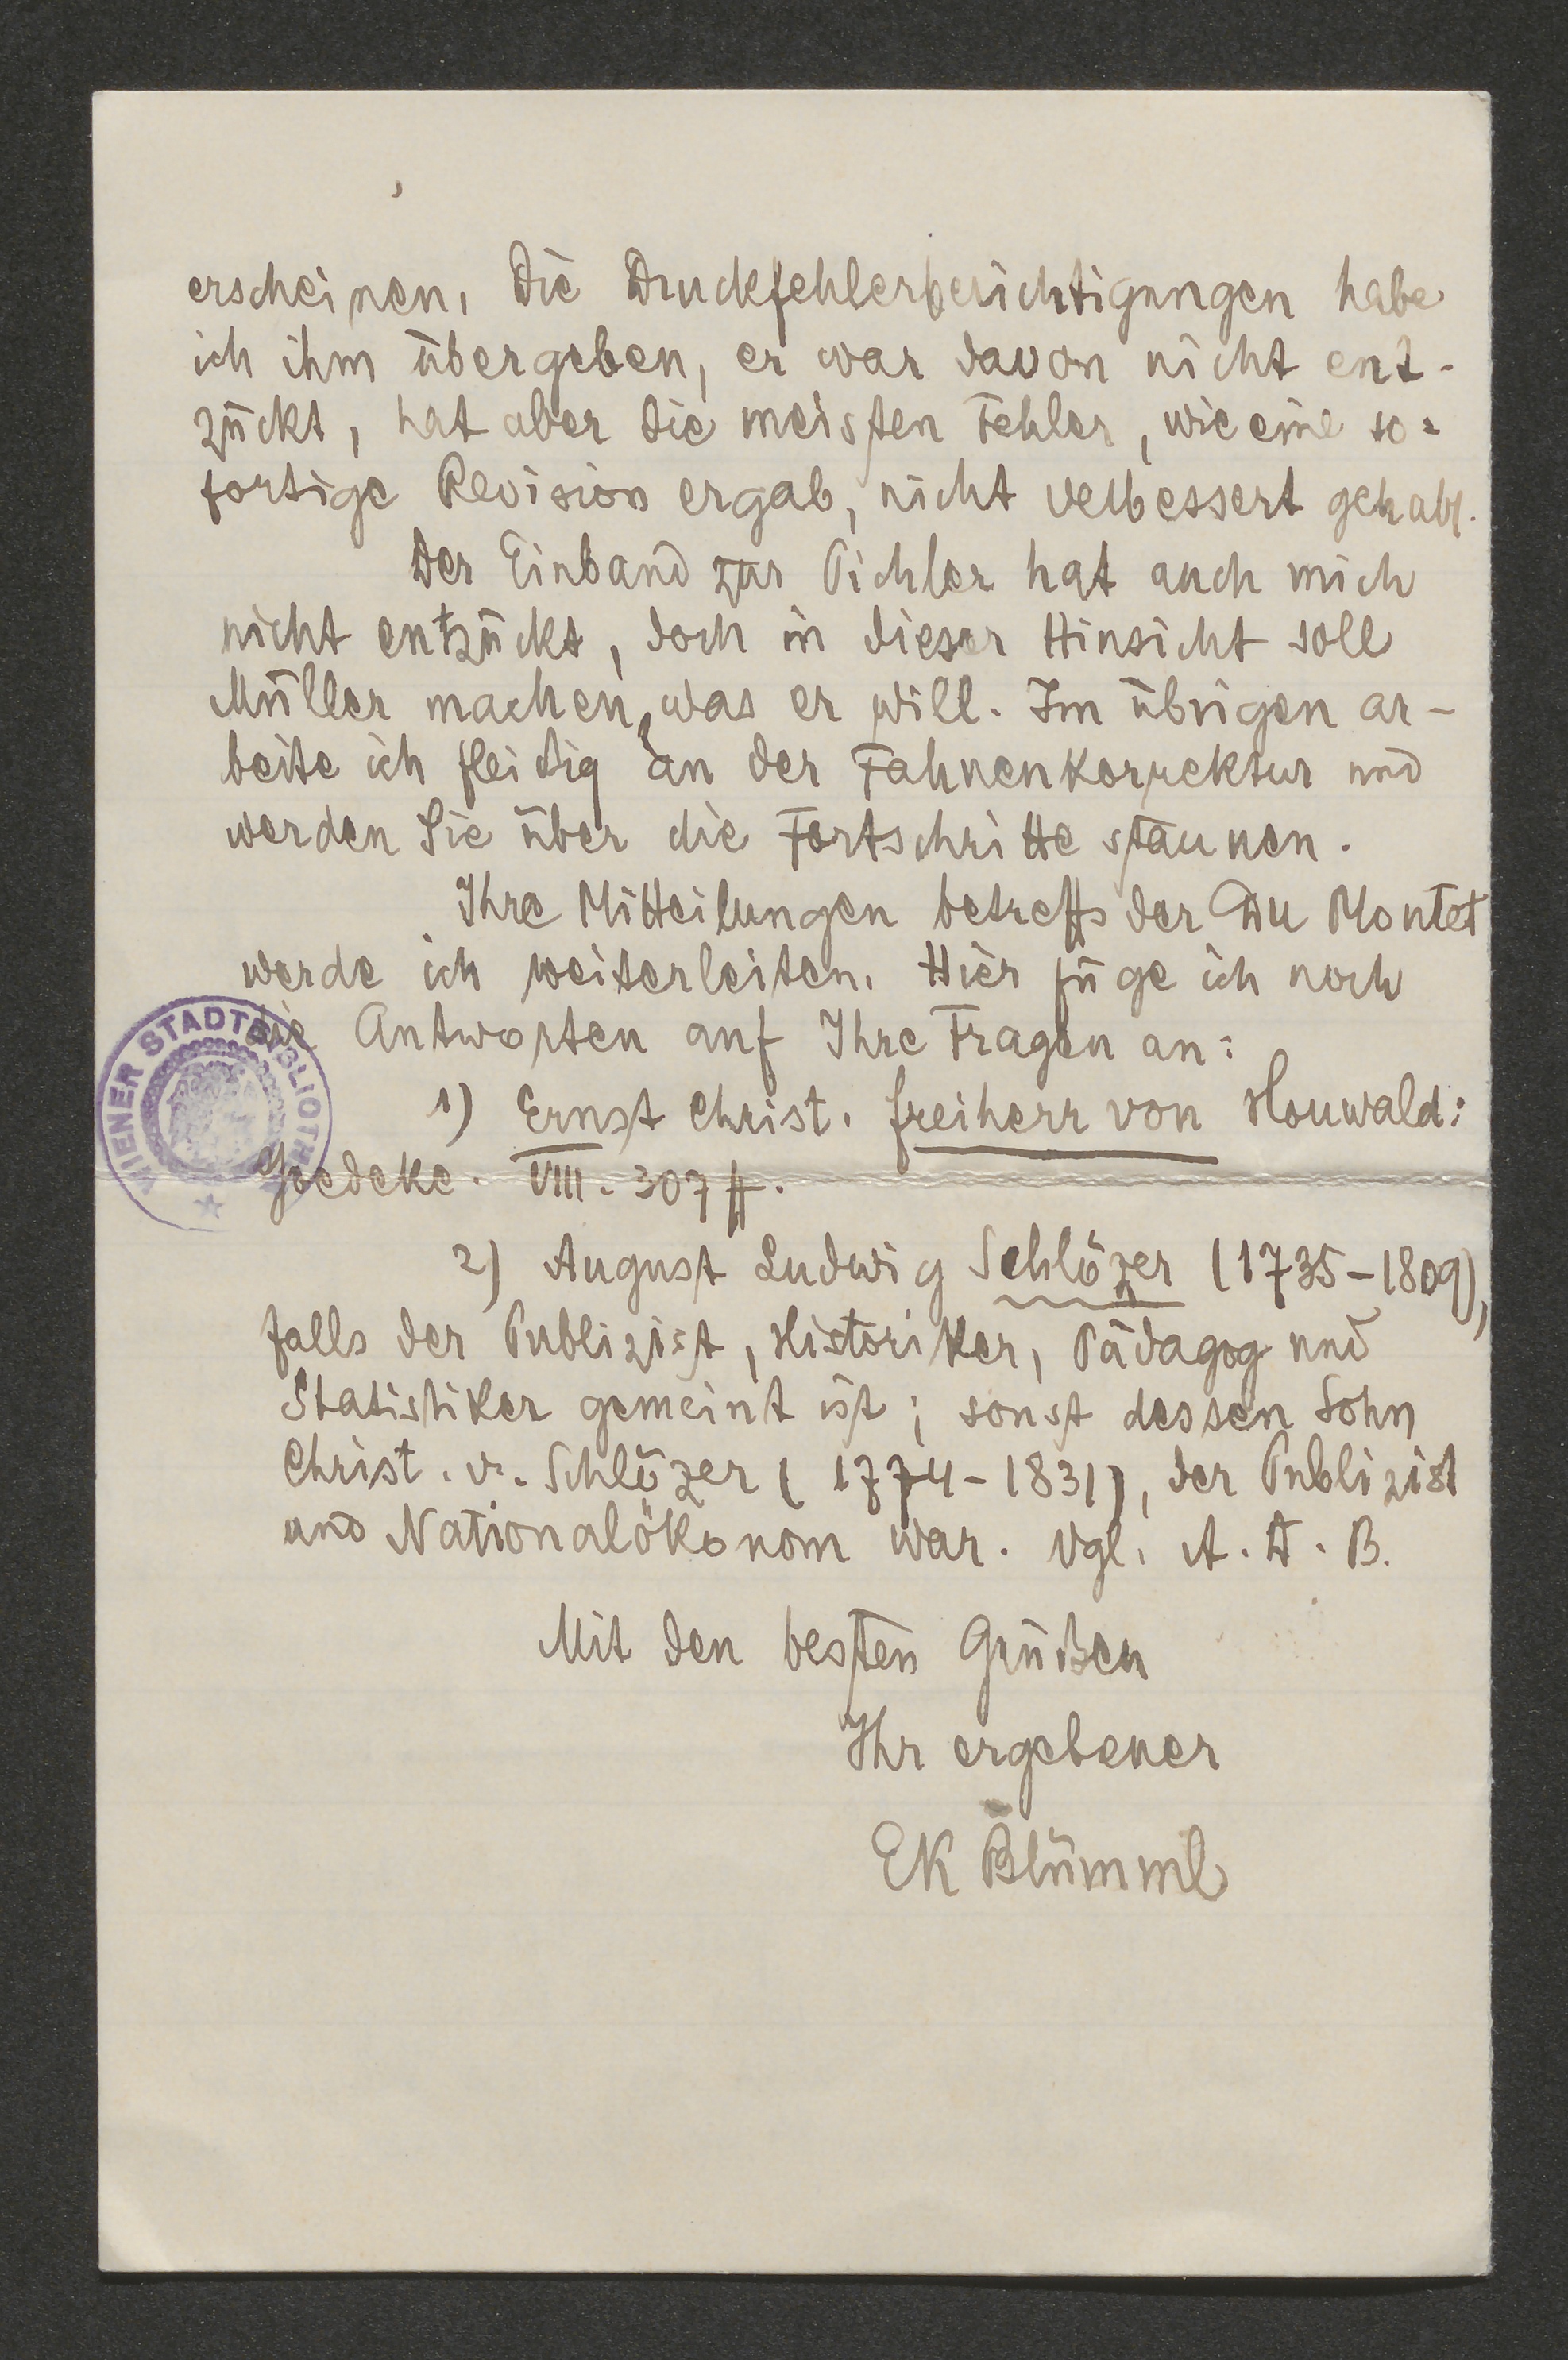 erscheinen. Die Druckfehlerberichtigungen habe
ich ihm übergeben, er war davon nicht ent-
zückt, hat aber die meisten Fehler, wie eine so=
fortige Revision ergab, nicht verbessert gehabt.
Der Einband zur Pichler hat auch mich
nicht entzückt, doch in dieser Hinsicht soll
Müller machen, was er will. Im übrigen ar-
beite ich fleißig an der Fahnenkorrektur und
werden Sie über die Fortschritte staunen.
Ihre Mitteilungen betreffs der Du Montet
werde ich weiterleiten. Hier füge ich noch
die Antworten auf Ihre Fragen an:
WIENER STADTBIBLIOTHEK
1) Ernst Christ. Freiherr von Houwald:
Goedeke. VIII. 307 ff.
2) August Ludwig Schlözer (1735-1809),
falls der Publizist, Historiker, Pädagog und
Statistiker gemeint ist; sonst dessen Sohn
Christ. v. Schlözer (1774-1831), der Publizist
und Nationalökonom war. Vgl. A. D. B.
Mit den besten Grüßen
Ihr ergebener
EK Blümml